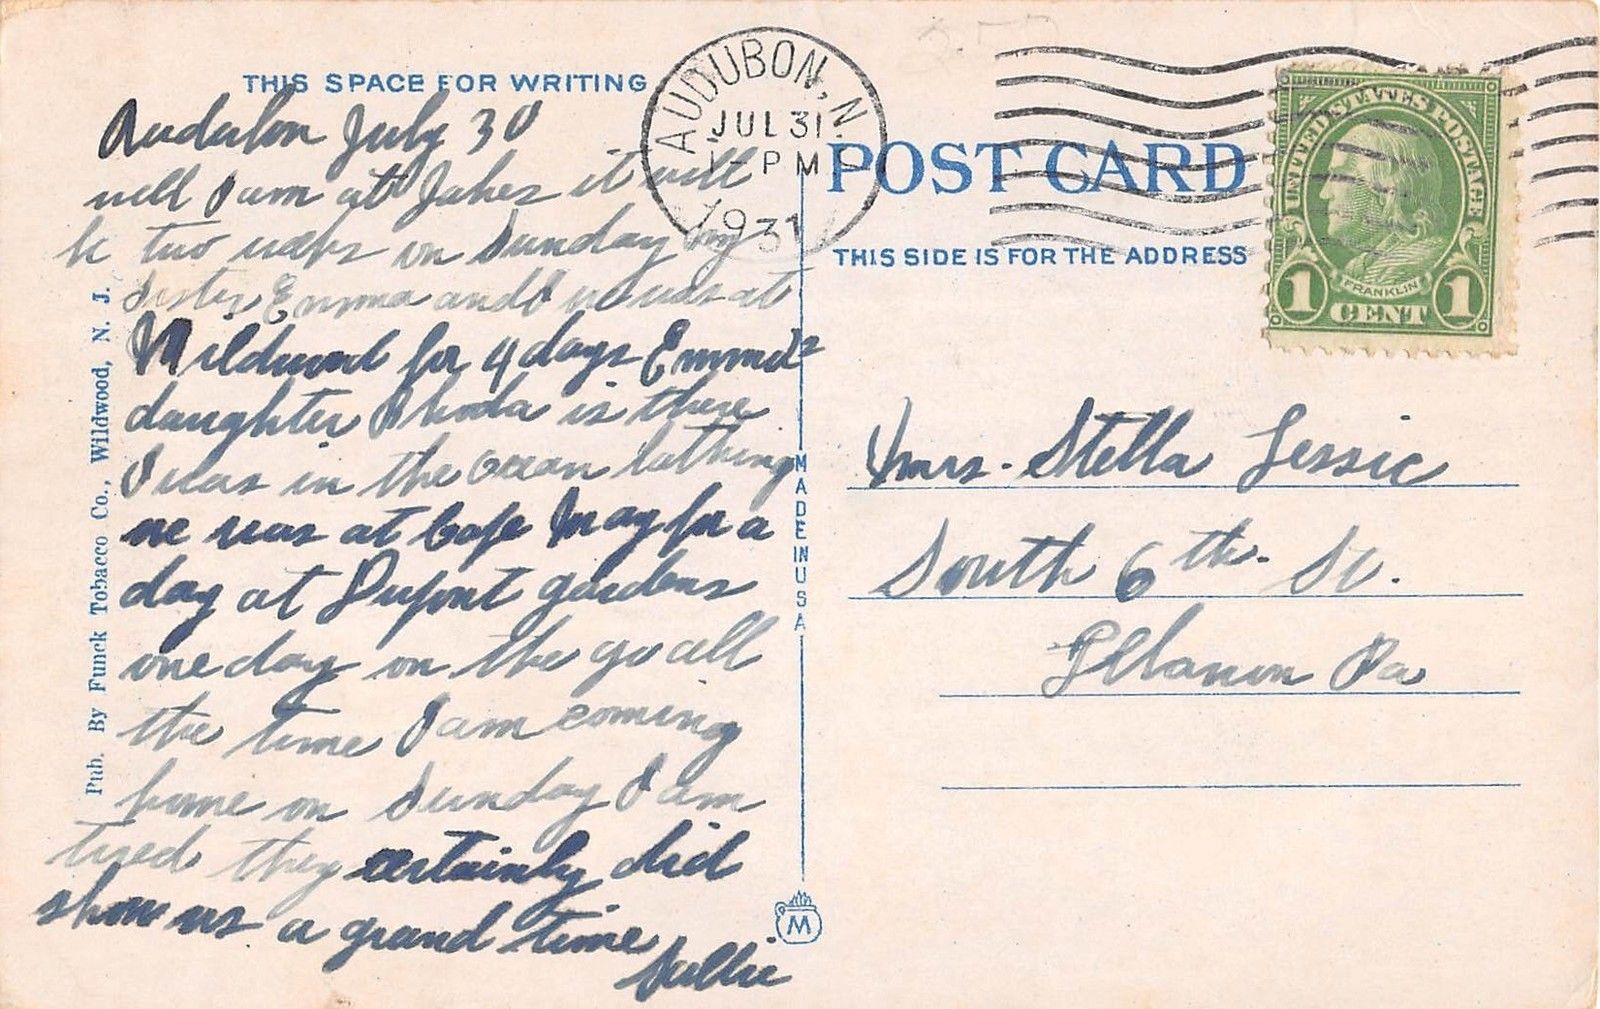 THIS SPACE FOR WRITING
Audubon July 30
well I am at Jakes it will
be two weeks on Sunday my
Sister Emma and I we was at
Wildwood for 4 days Emma's
daughter Rhoda is there
I was in the ocean bathing
we was at Cape May for a
day at Dupont gardens
one day on the go all
the time I am coming
home on Sunday I am
tired they certainly did
show us a grand time
Sallie
Pub. By Funck Tobacco Co., Wildwood, N. J.
MADE IN USA
M
AUDUBON, N.J.
JUL 31
1 - PM
1931
POST CARD
THIS SIDE IS FOR THE ADDRESS
UNITED STATES POSTAGE
FRANKLIN
1 CENT 1
Mrs. Stella Lessic
South 6th. St.
Lebanon Pa